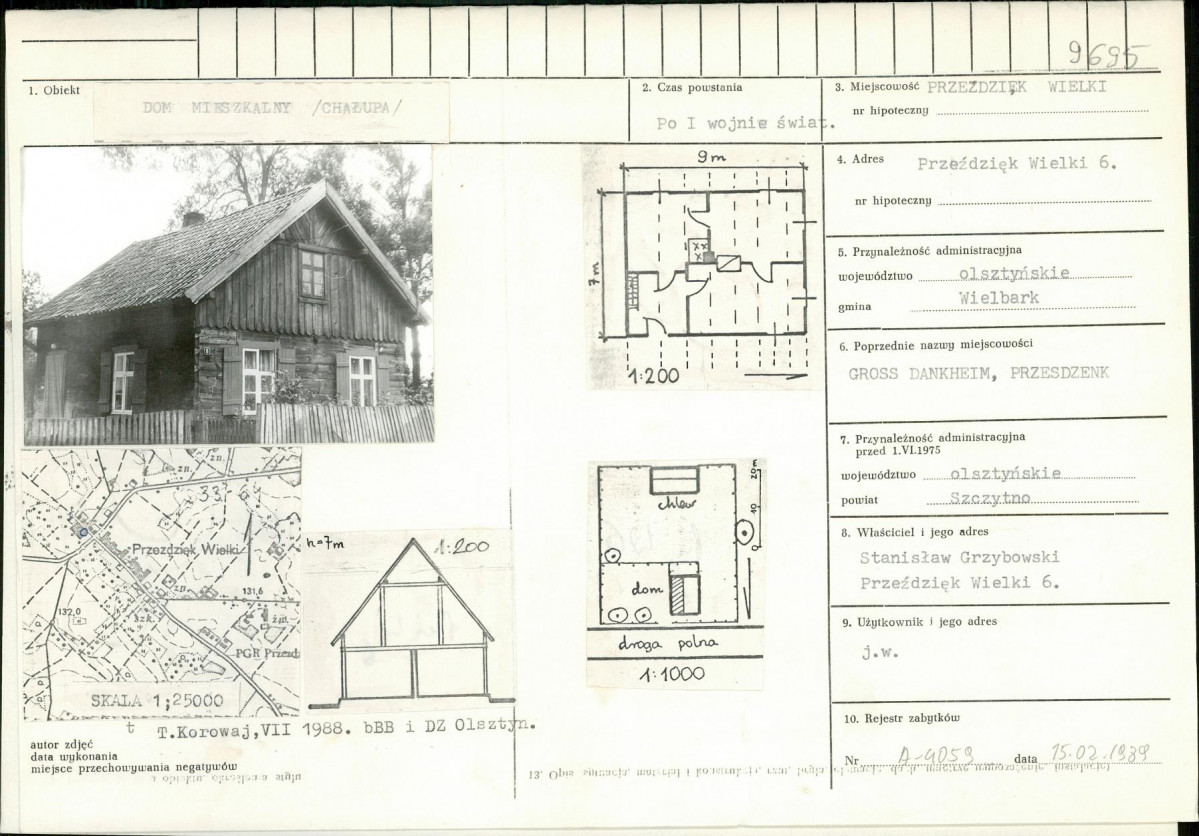 9695
1. Obiekt
DOM MIESZKALNY /CHAŁUPA/
2. Czas powstania
Po I wojnie świat.
3. Miejscowość PRZEŹDZIĘK WIELKI
nr hipoteczny
4. Adres Przeździęk Wielki 6.
nr hipoteczny
5. Przynależność administracyjna
województwo olsztyńskie
gmina Wielbark
6. Poprzednie nazwy miejscowości
GROSS DANKHEIM, PRZESDZENK
7. Przynależność administracyjna
przed 1.VI.1975
województwo olsztyńskie
powiat Szczytno
8. Właściciel i jego adres
Stanisław Grzybowski
Przeździęk Wielki 6.
9. Użytkownik i jego adres
j.w.
10. Rejestr zabytków
Nr data
9m
7m
1:200
chlew
m
20
10
0
dom
droga polna
1:1000
h=7m
1:200
zn.
zn.
33
Przezdzięk Wielki
zn.
131,6
132,0
Szk.
żw.
PGR Przezd
SKALA 1;25000
t T.Korowaj,VII 1988. bBB i DZ Olsztyn.
autor zdjęć
data wykonania
miejsce przechowywania negatywów